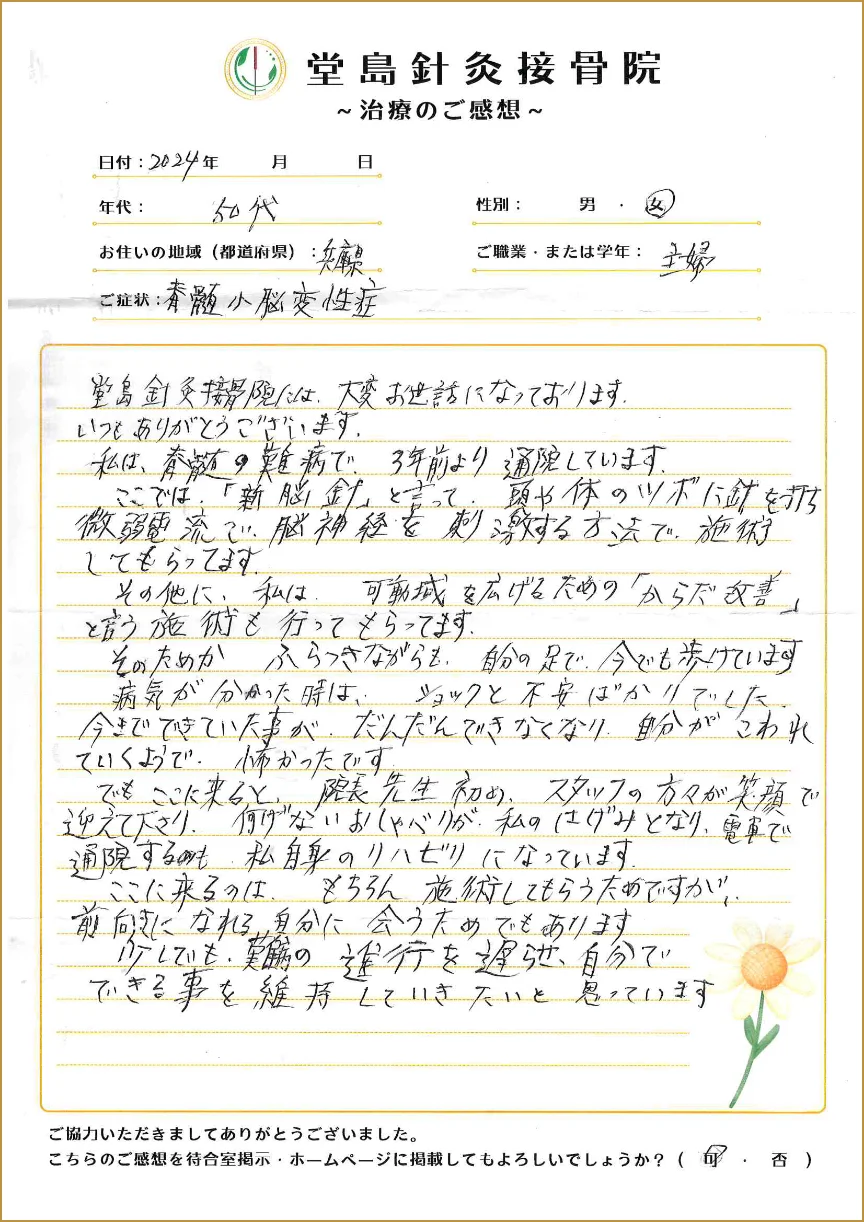 堂島針灸接骨院
~治療のご感想~
日付:2024年 月 日
年代: 50代
性別: 男 ・ 女
お住いの地域(都道府県):兵庫県
ご職業・または学年: 主婦
ご症状:脊髄小脳変性症
堂島針灸接骨院には、大変お世話になっております。
いつもありがとうございます。
私は、脊髄の難病で、3年前より通院しています。
ここでは、「新脳針」と言って、頭や体のツボに針を打ち
微弱電流で、脳神経を刺激する方法で、施術
してもらってます。
その他に、私は、可動域を広げるための「からだ改善」
と言う施術も行ってもらってます。
そのためか ふらつきながらも、自分の足で、今でも歩けています
病気が分かった時は、ショックと不安ばかりでした。
今までできていた事が、だんだんできなくなり、自分がこわれ
ていくようで、怖かったです。
でもここに来ると、院長先生初め、スタッフの方々が笑顔で
迎えて下さり、何げないおしゃべりが、私のはげみとなり、電車で
通院するのも、私自身のリハビリになっています。
ここに来るのは、もちろん施術してもらうためですが、
前向きになれる自分に会うためでもあります
少しでも、難病の進行を遅らせ、自分で
できる事を維持していきたいと思っています
ご協力いただきましてありがとうございました。
こちらのご感想を待合室掲示・ホームページに掲載してもよろしいでしょうか?( 可 ・ 否 )